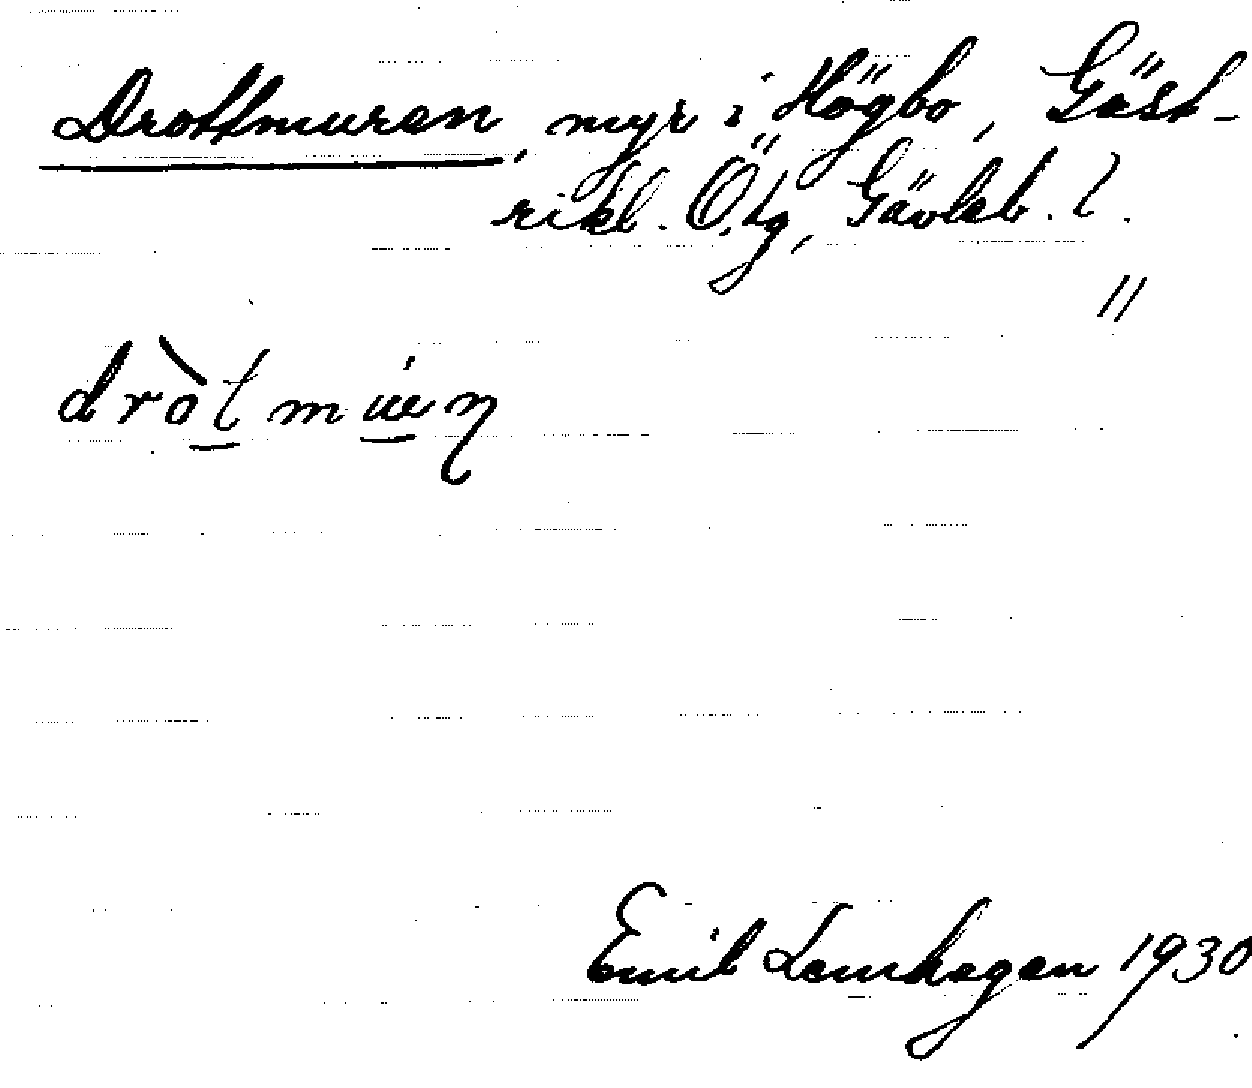 Drottmuren, myr i Högbo, Gäst-
rikl. Ö. tg, Gävleb. l.
"
Emil Lenhagen 1930